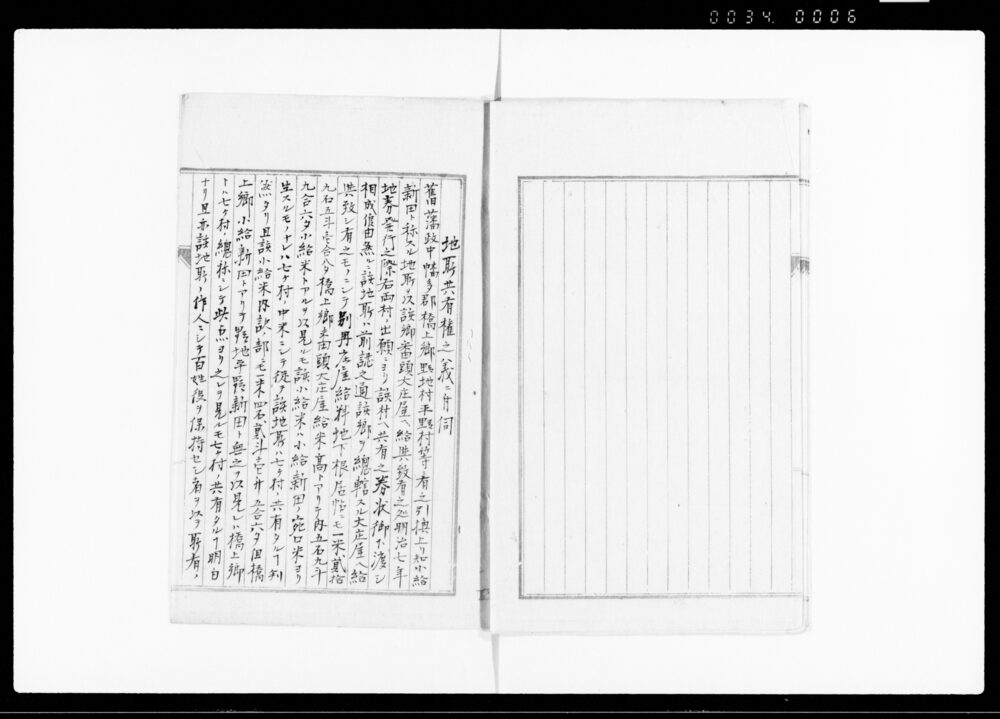 0034 0006
地所共有権之義ニ付伺
旧藩政中幡多郡橋上郷野地村平野村等ニ有之引橋上リ知小給
新田ト称スル地所ヲ以該郷番頭大庄屋ヘ給与致有之処明治七年
地券発行之際右両村ノ出願ニヨリ該村ヘ共有之券状御下渡シ
相成候由無ルニ該地所ハ前誌之通該郷ヲ總轄スル大庄屋ヘ給
与致シ有之モノニシテ別冊庄屋給料地下根居帖ニモ一米貮拾
九石五斗壱合八夕橋上郷番頭大庄屋給米高トアリテ内五石九斗
九合六夕小給米トアルヲ以見ルモ該小給米ハ小給新田ノ宛口米ヨリ
生スルモノナレハ七ヶ村ノ中米ニシテ従テ該地所ハ七ヶ村ノ共有タルヿ判
然タリ且該小給米内訳ノ部ニモ一米四石貮斗壱升五合六夕但橋
上郷小給新田トアリテ野地平野新田ト無之ヲ以見レハ橋上郷
トハ七ヶ村ノ總称ニシテ此点ヨリ之レヲ見ルモ七ヶ村ノ共有タルヿ明白
ナリ且亦該地所ノ作人ニシテ百姓役ヲ保持セシ者ヲ以テ所有ノ